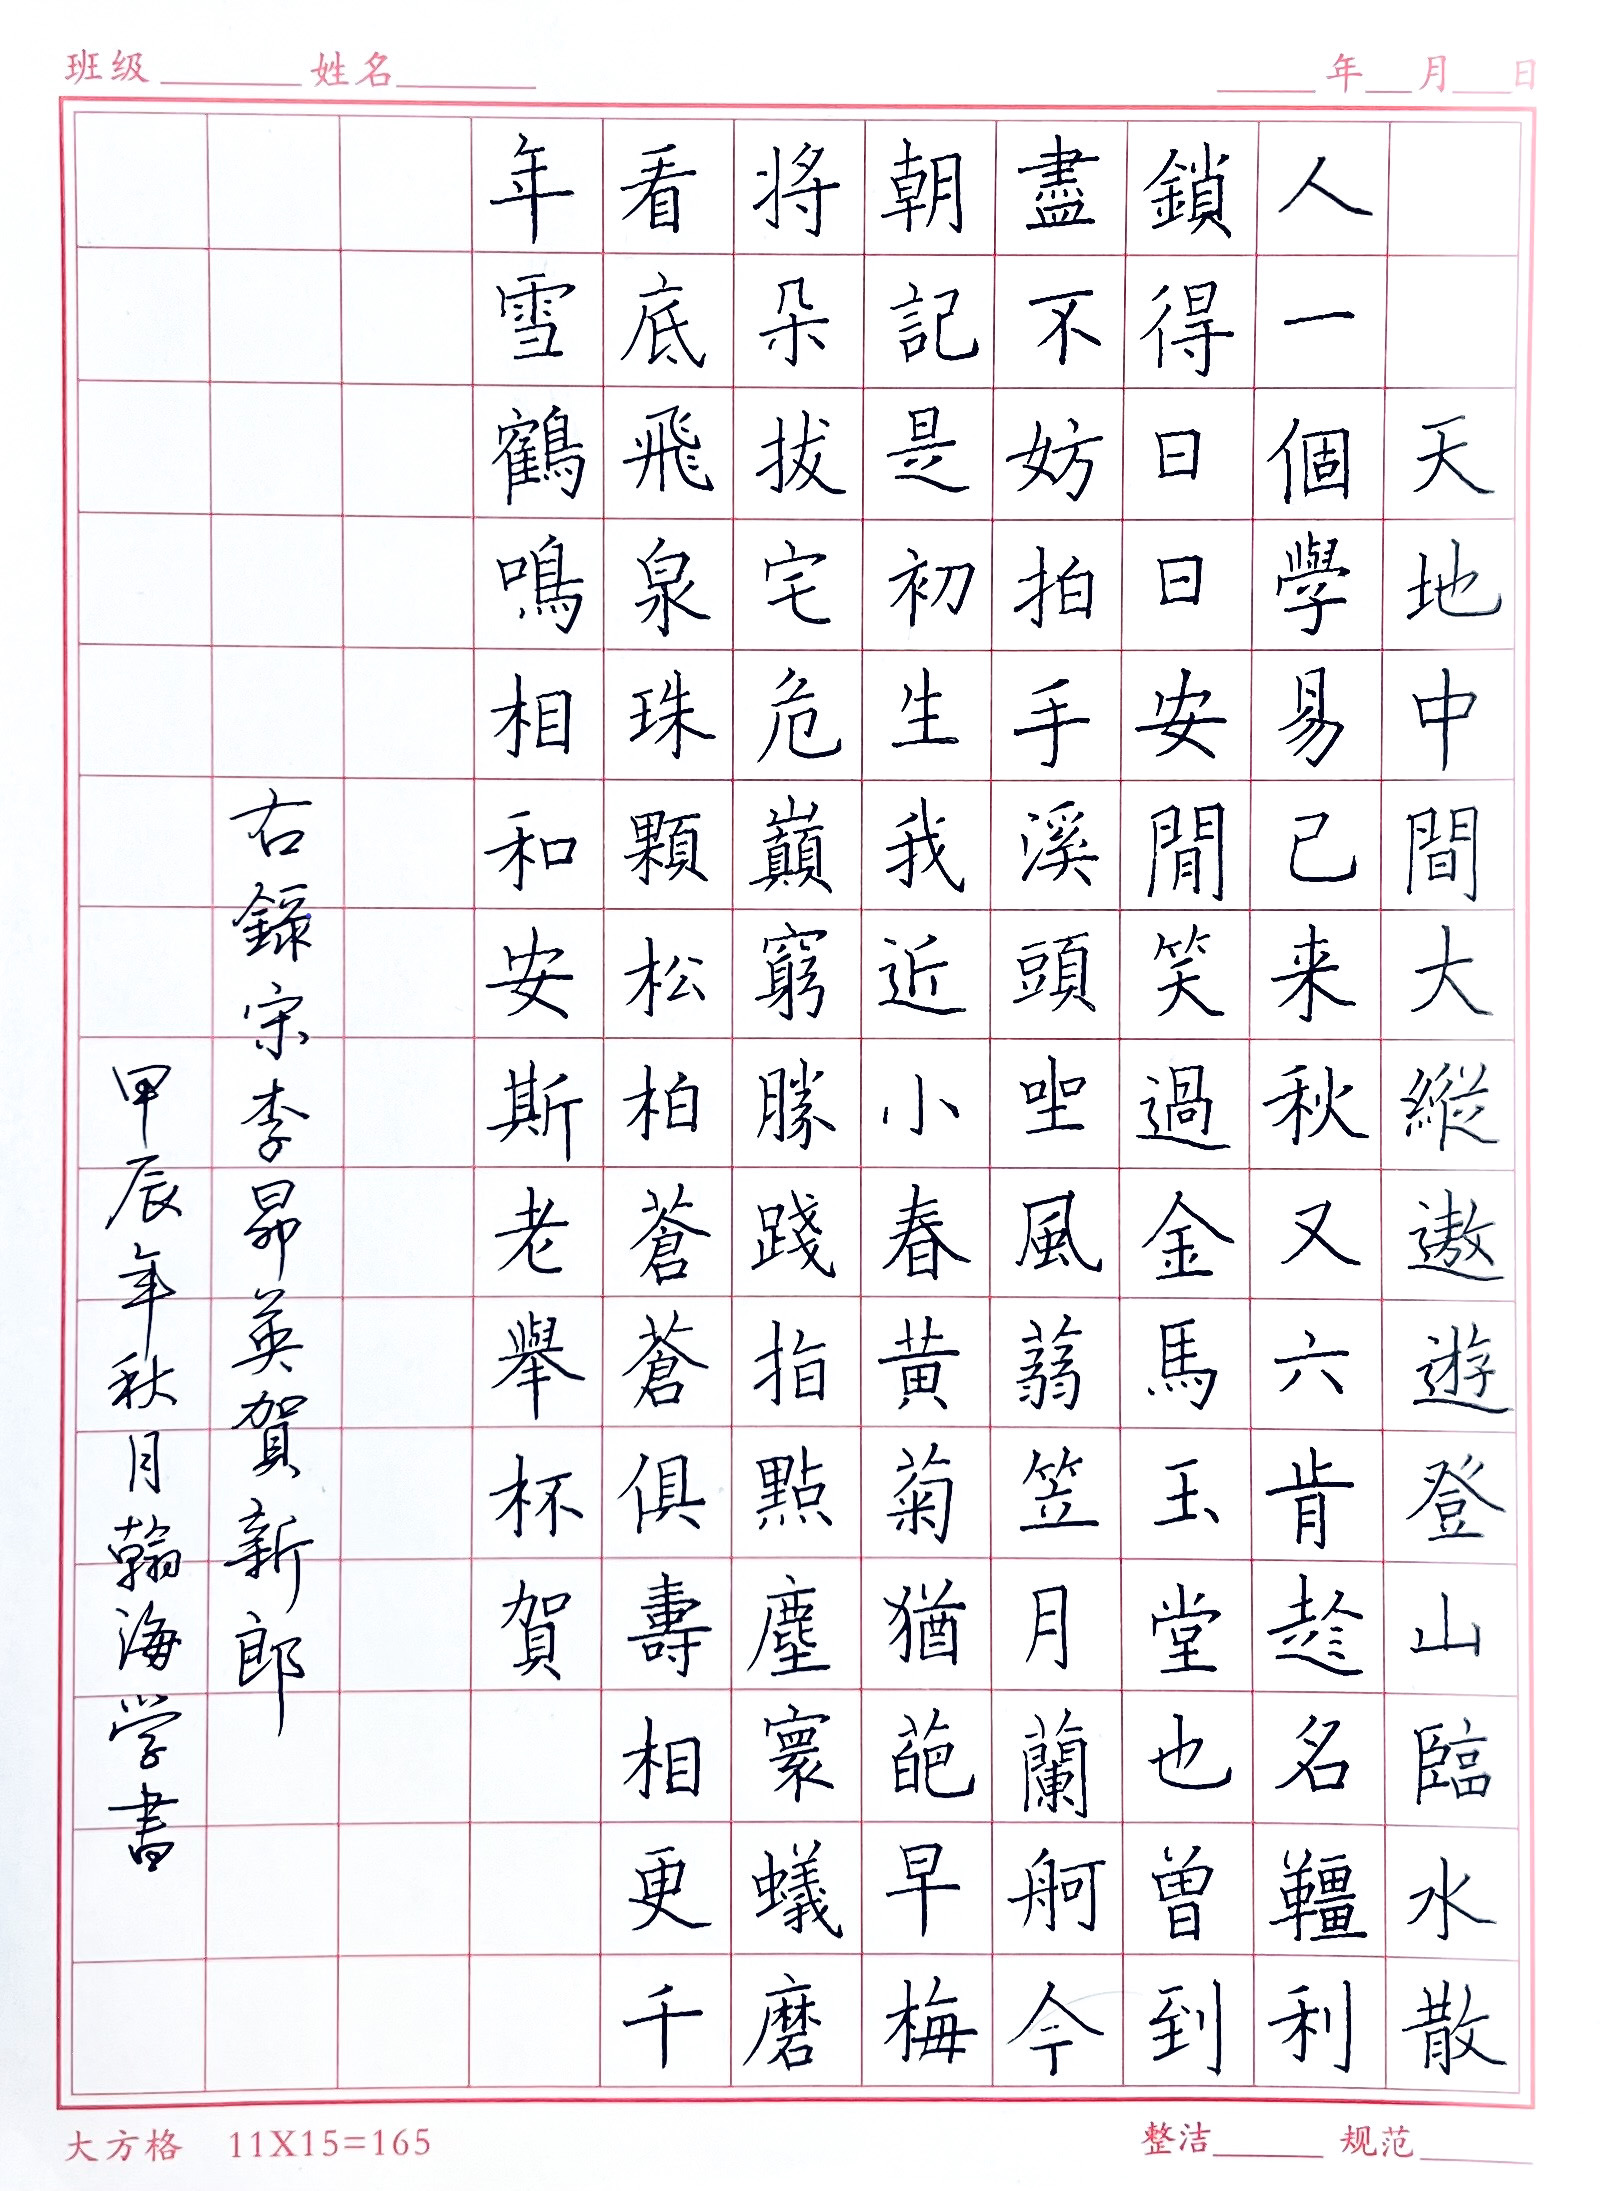 班级 姓名 年 月 日
天地中間大縱遨遊登山臨水散
人一個學易已来秋又六肯趁名韁利
鎖得日日安閒笑過金馬玉堂也曾到
盡不妨拍手溪頭坐風蒻笠月蘭舸今
朝記是初生我近小春黄菊猶葩早梅
将朵拔宅危巔窮勝踐指點塵寰蟻磨
看底飛泉珠顆松柏蒼蒼俱壽相更千
年雪鶴鳴相和安斯老舉杯賀
右録宋李昴英賀新郎
甲辰年秋月翰海学書
大方格 11X15=165 整洁 规范